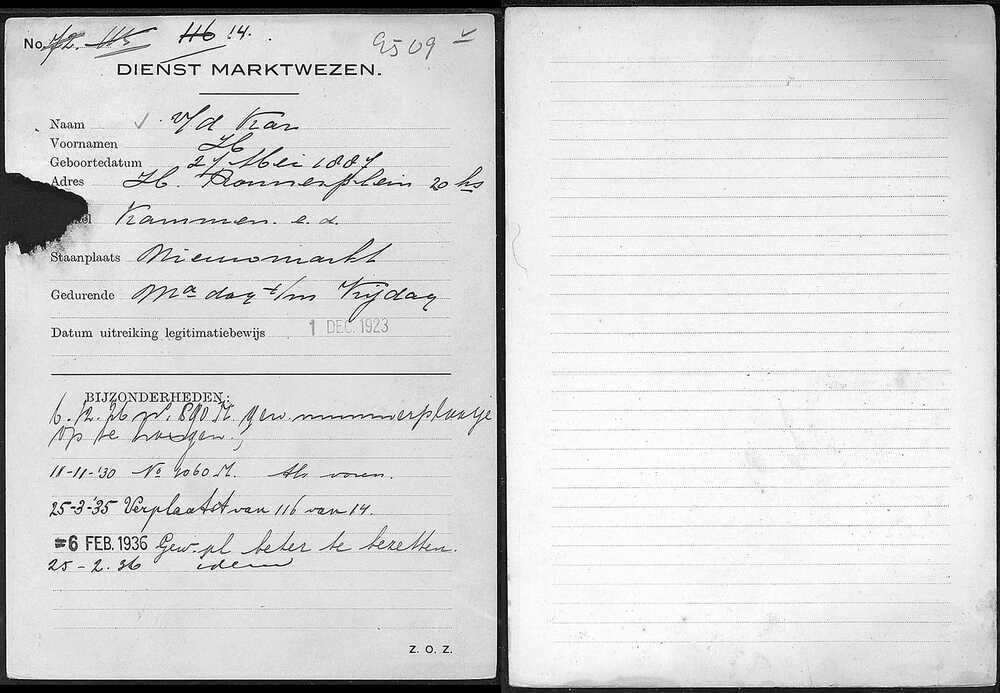 No. 72. 115 116 14.
9509
DIENST MARKTWEZEN.
Naam v/d Kar
Voornamen H
Geboortedatum 27 Mei 1887
Adres H. Ronnerplein 20 hs
Kammen e.d.
Staanplaats Nieuwmarkt
Gedurende Maandag t/m Vrijdag
Datum uitreiking legitimatiebewijs 1 DEC. 1923
BIJZONDERHEDEN:
6.12.26 No. 890 M. gew. nummerplaatje
op te hangen.
11-11-'30 No 1060 M. Als voren.
25-3-'35 Verplaatst van 116 van 14.
-6 FEB. 1936 Gew. pl beter te bezetten.
25-2.36 idem
Z. O. Z.